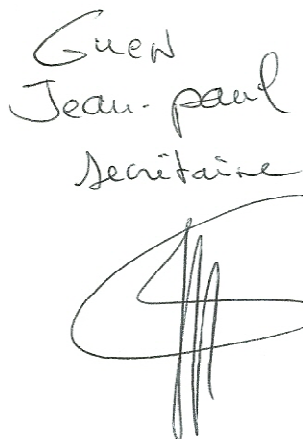 Guen
Jean-paul
secrétaire